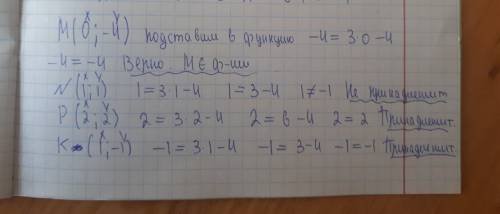 M(0; -4) подставим в функцию -4 = 3·0 -4
x y
-4 = -4 Верно. M ∈ ф-ии
N(1; 1) 1 = 3·1 -4 1 = 3 -4 1 ≠ -1 Не принадлежит
x y
P(2; 2) 2 = 3·2 -4 2 = 6 -4 2 = 2 Принадлежит.
x y
K (1; -1) -1 = 3·1 -4 -1 = 3 -4 -1 = -1 Принадлежит.
x y